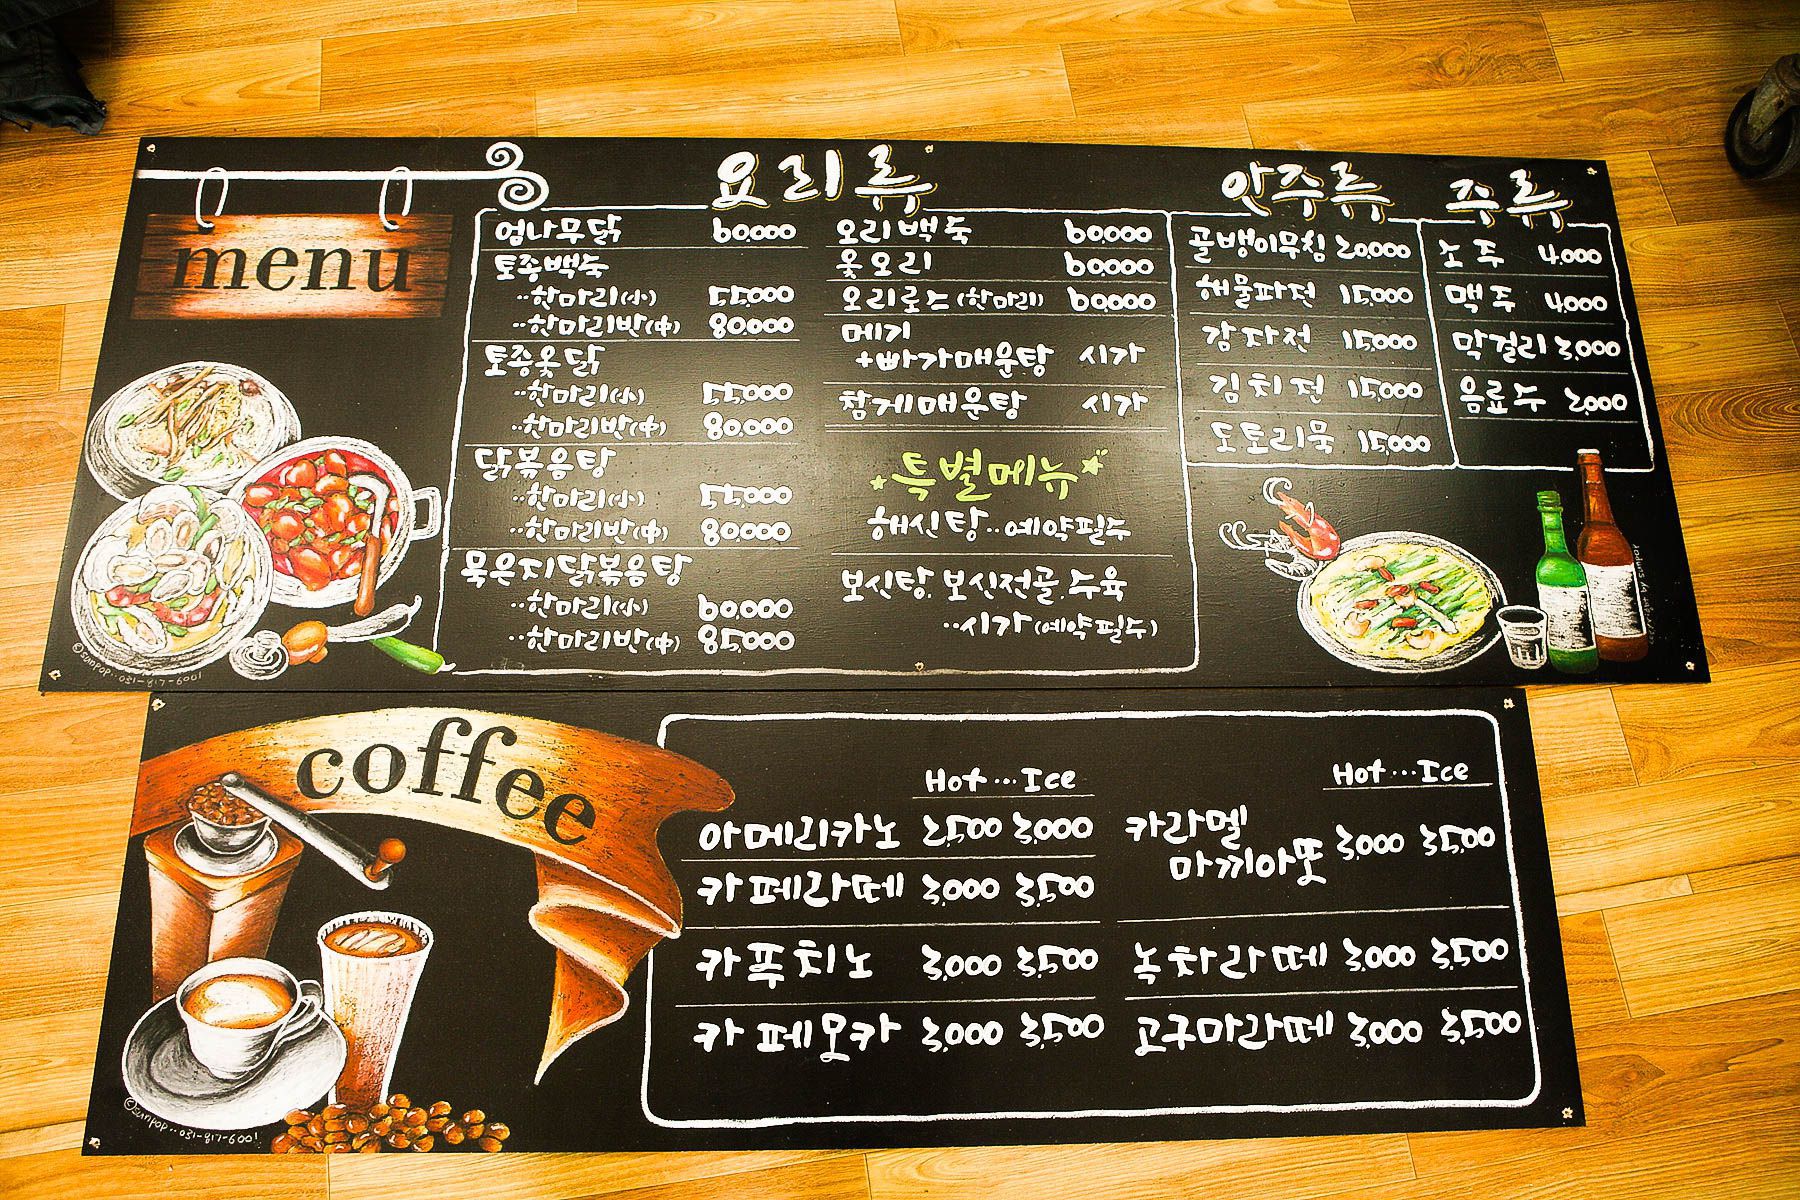 menu
요리류
엄나무닭 60,000
토종백숙
··한마리(小) 55,000
··한마리반(中) 80,000
토종옻닭
··한마리(小) 55,000
··한마리반(中) 80,000
닭볶음탕
··한마리(小) 55,000
··한마리반(中) 80,000
묵은지닭볶음탕
··한마리(小) 60,000
··한마리반(中) 85,000
오리백숙 60,000
옻오리 60,000
오리로스(한마리) 60,000
메기
+빠가매운탕 시가
참게매운탕 시가
특별메뉴
해신탕··예약필수
보신탕, 보신전골, 수육
··시가(예약필수)
안주류
골뱅이무침 20,000
해물파전 15,000
감자전 15,000
김치전 15,000
도토리묵 15,000
주류
소주 4,000
맥주 4,000
막걸리 3,000
음료수 2,000
©sunpop··031-817-6001
copyright by sunpop
coffee
Hot···Ice
아메리카노 2,500 3,000
카페라떼 3,000 3,500
카푸치노 3,000 3,500
카페모카 3,000 3,500
Hot···Ice
카라멜
마끼아또 3,000 3,500
녹차라떼 3,000 3,500
고구마라떼 3,000 3,500
©sunpop··031-817-6001